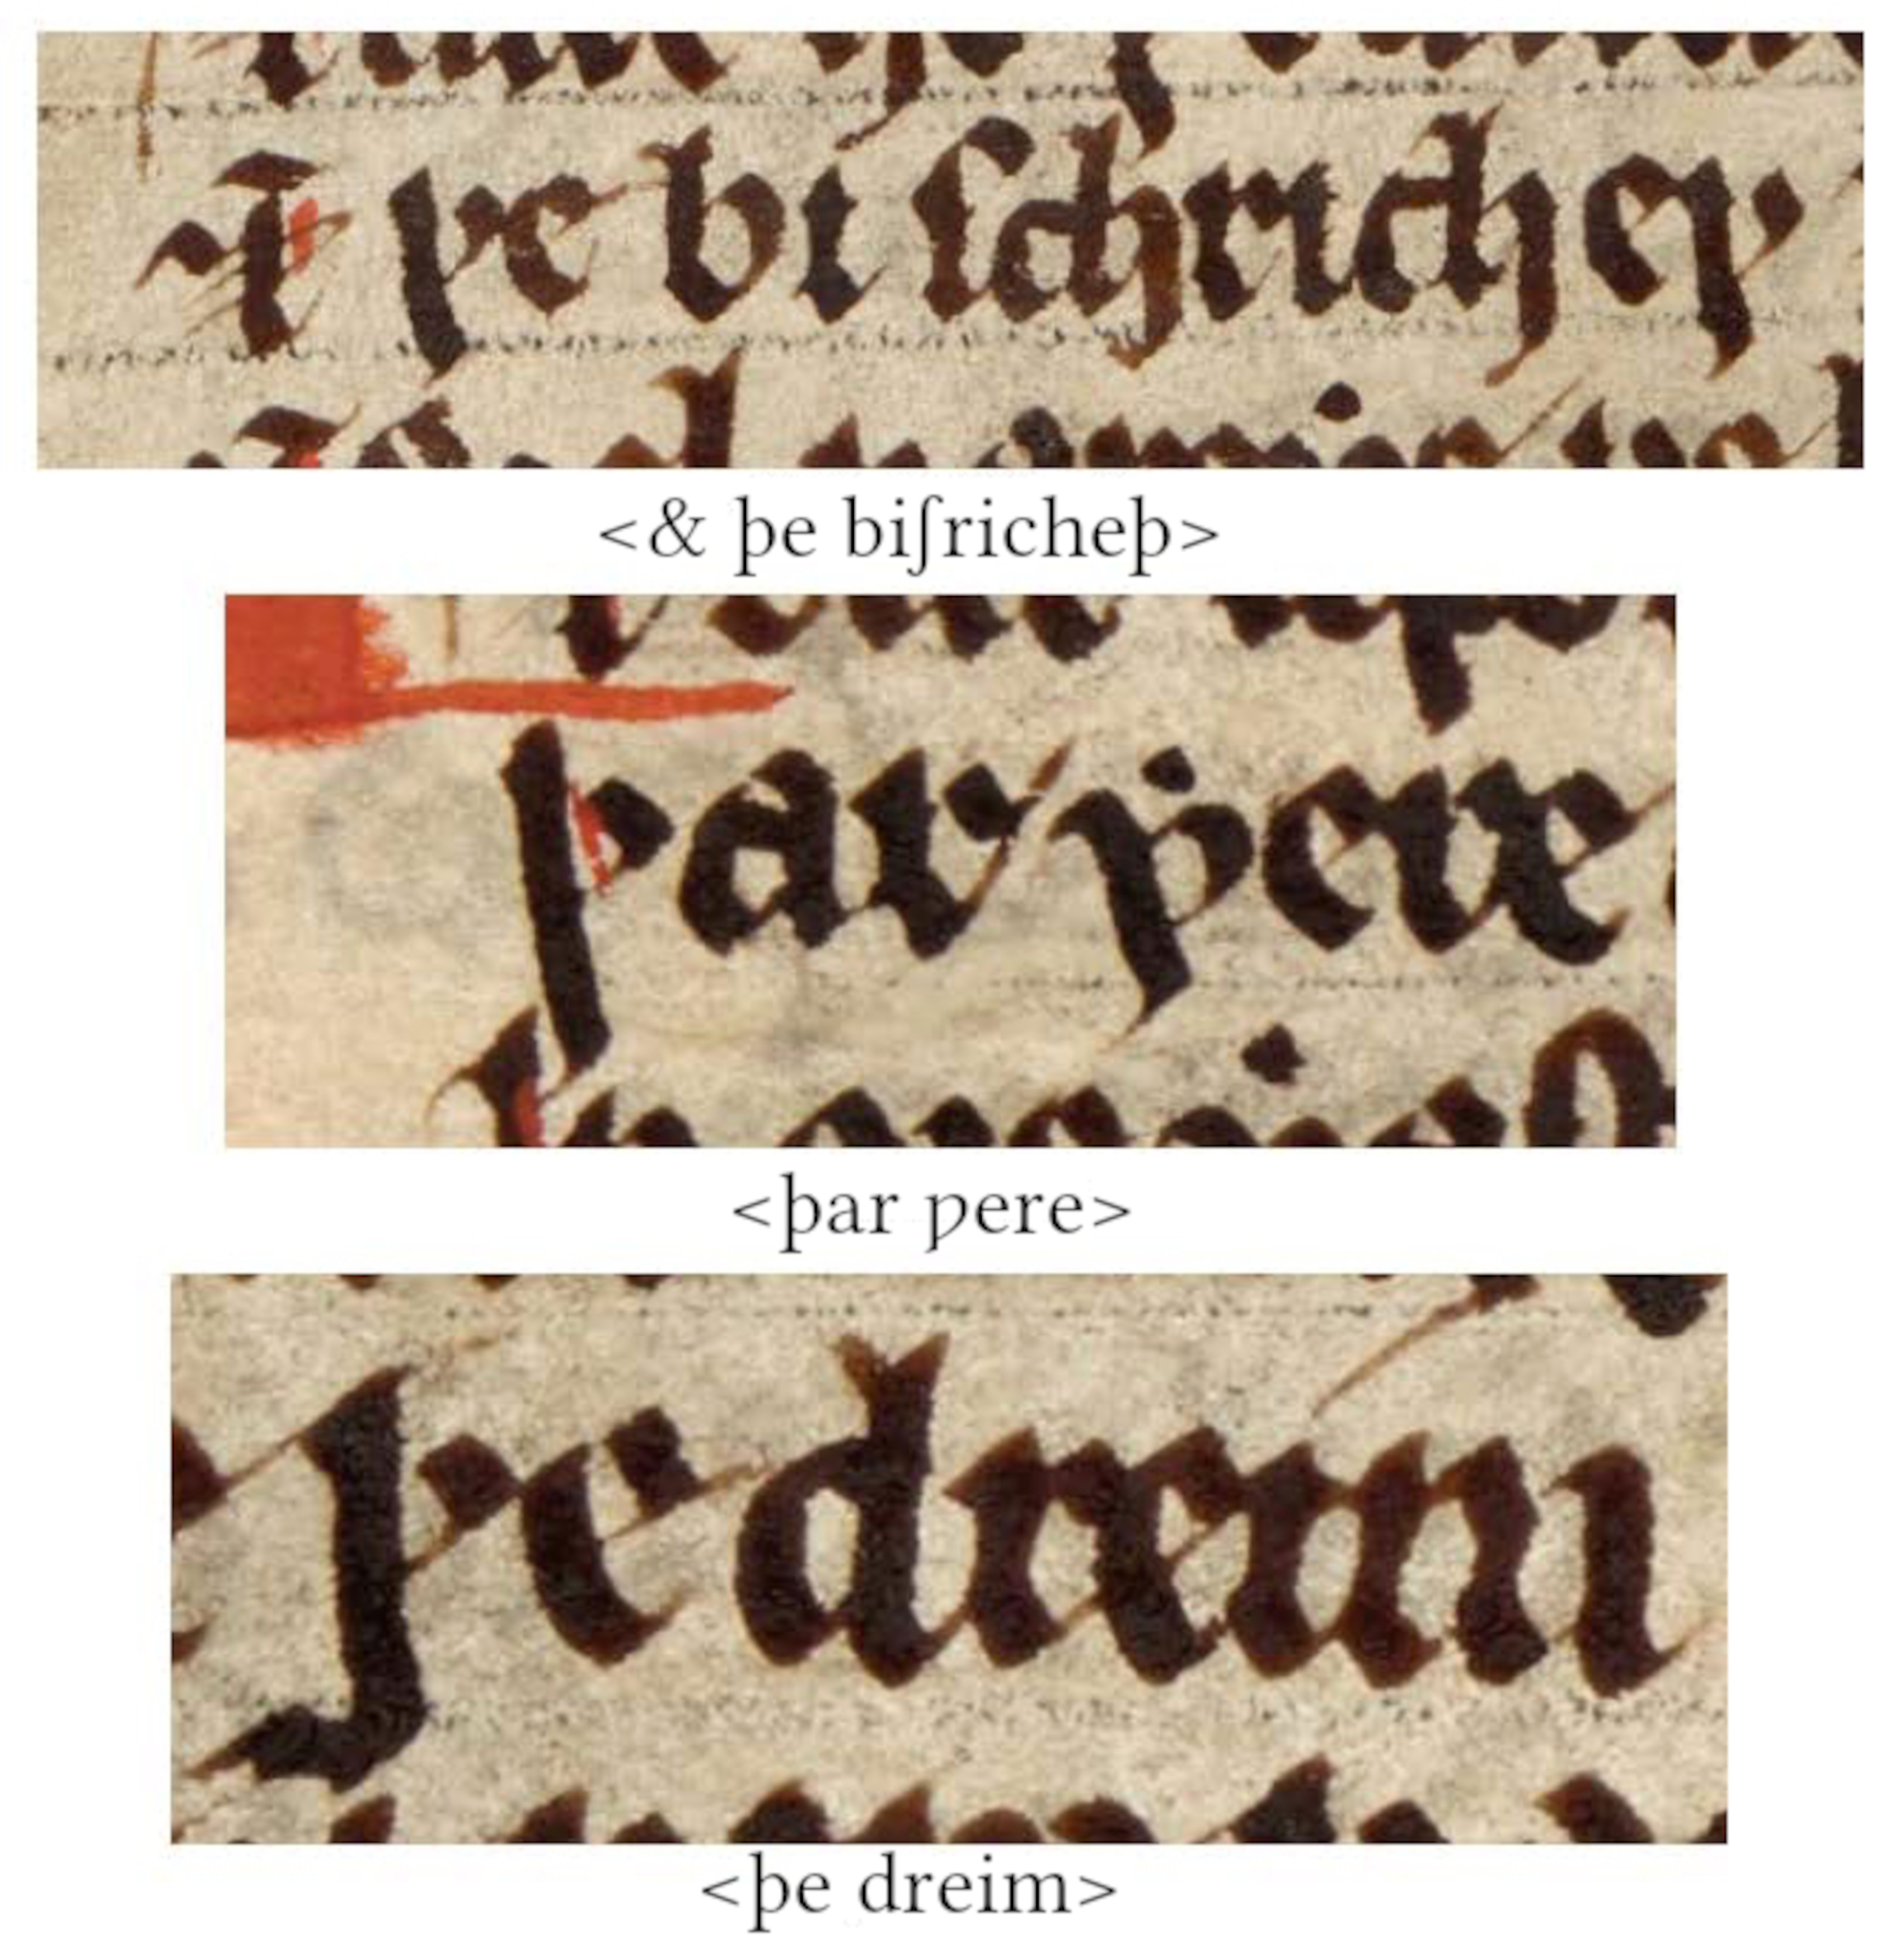 ⁊ þe bi ſchricheþ
<& þe biſricheþ>
þar ƿere
<þar ƿere>
þe dreim
<þe dreim>